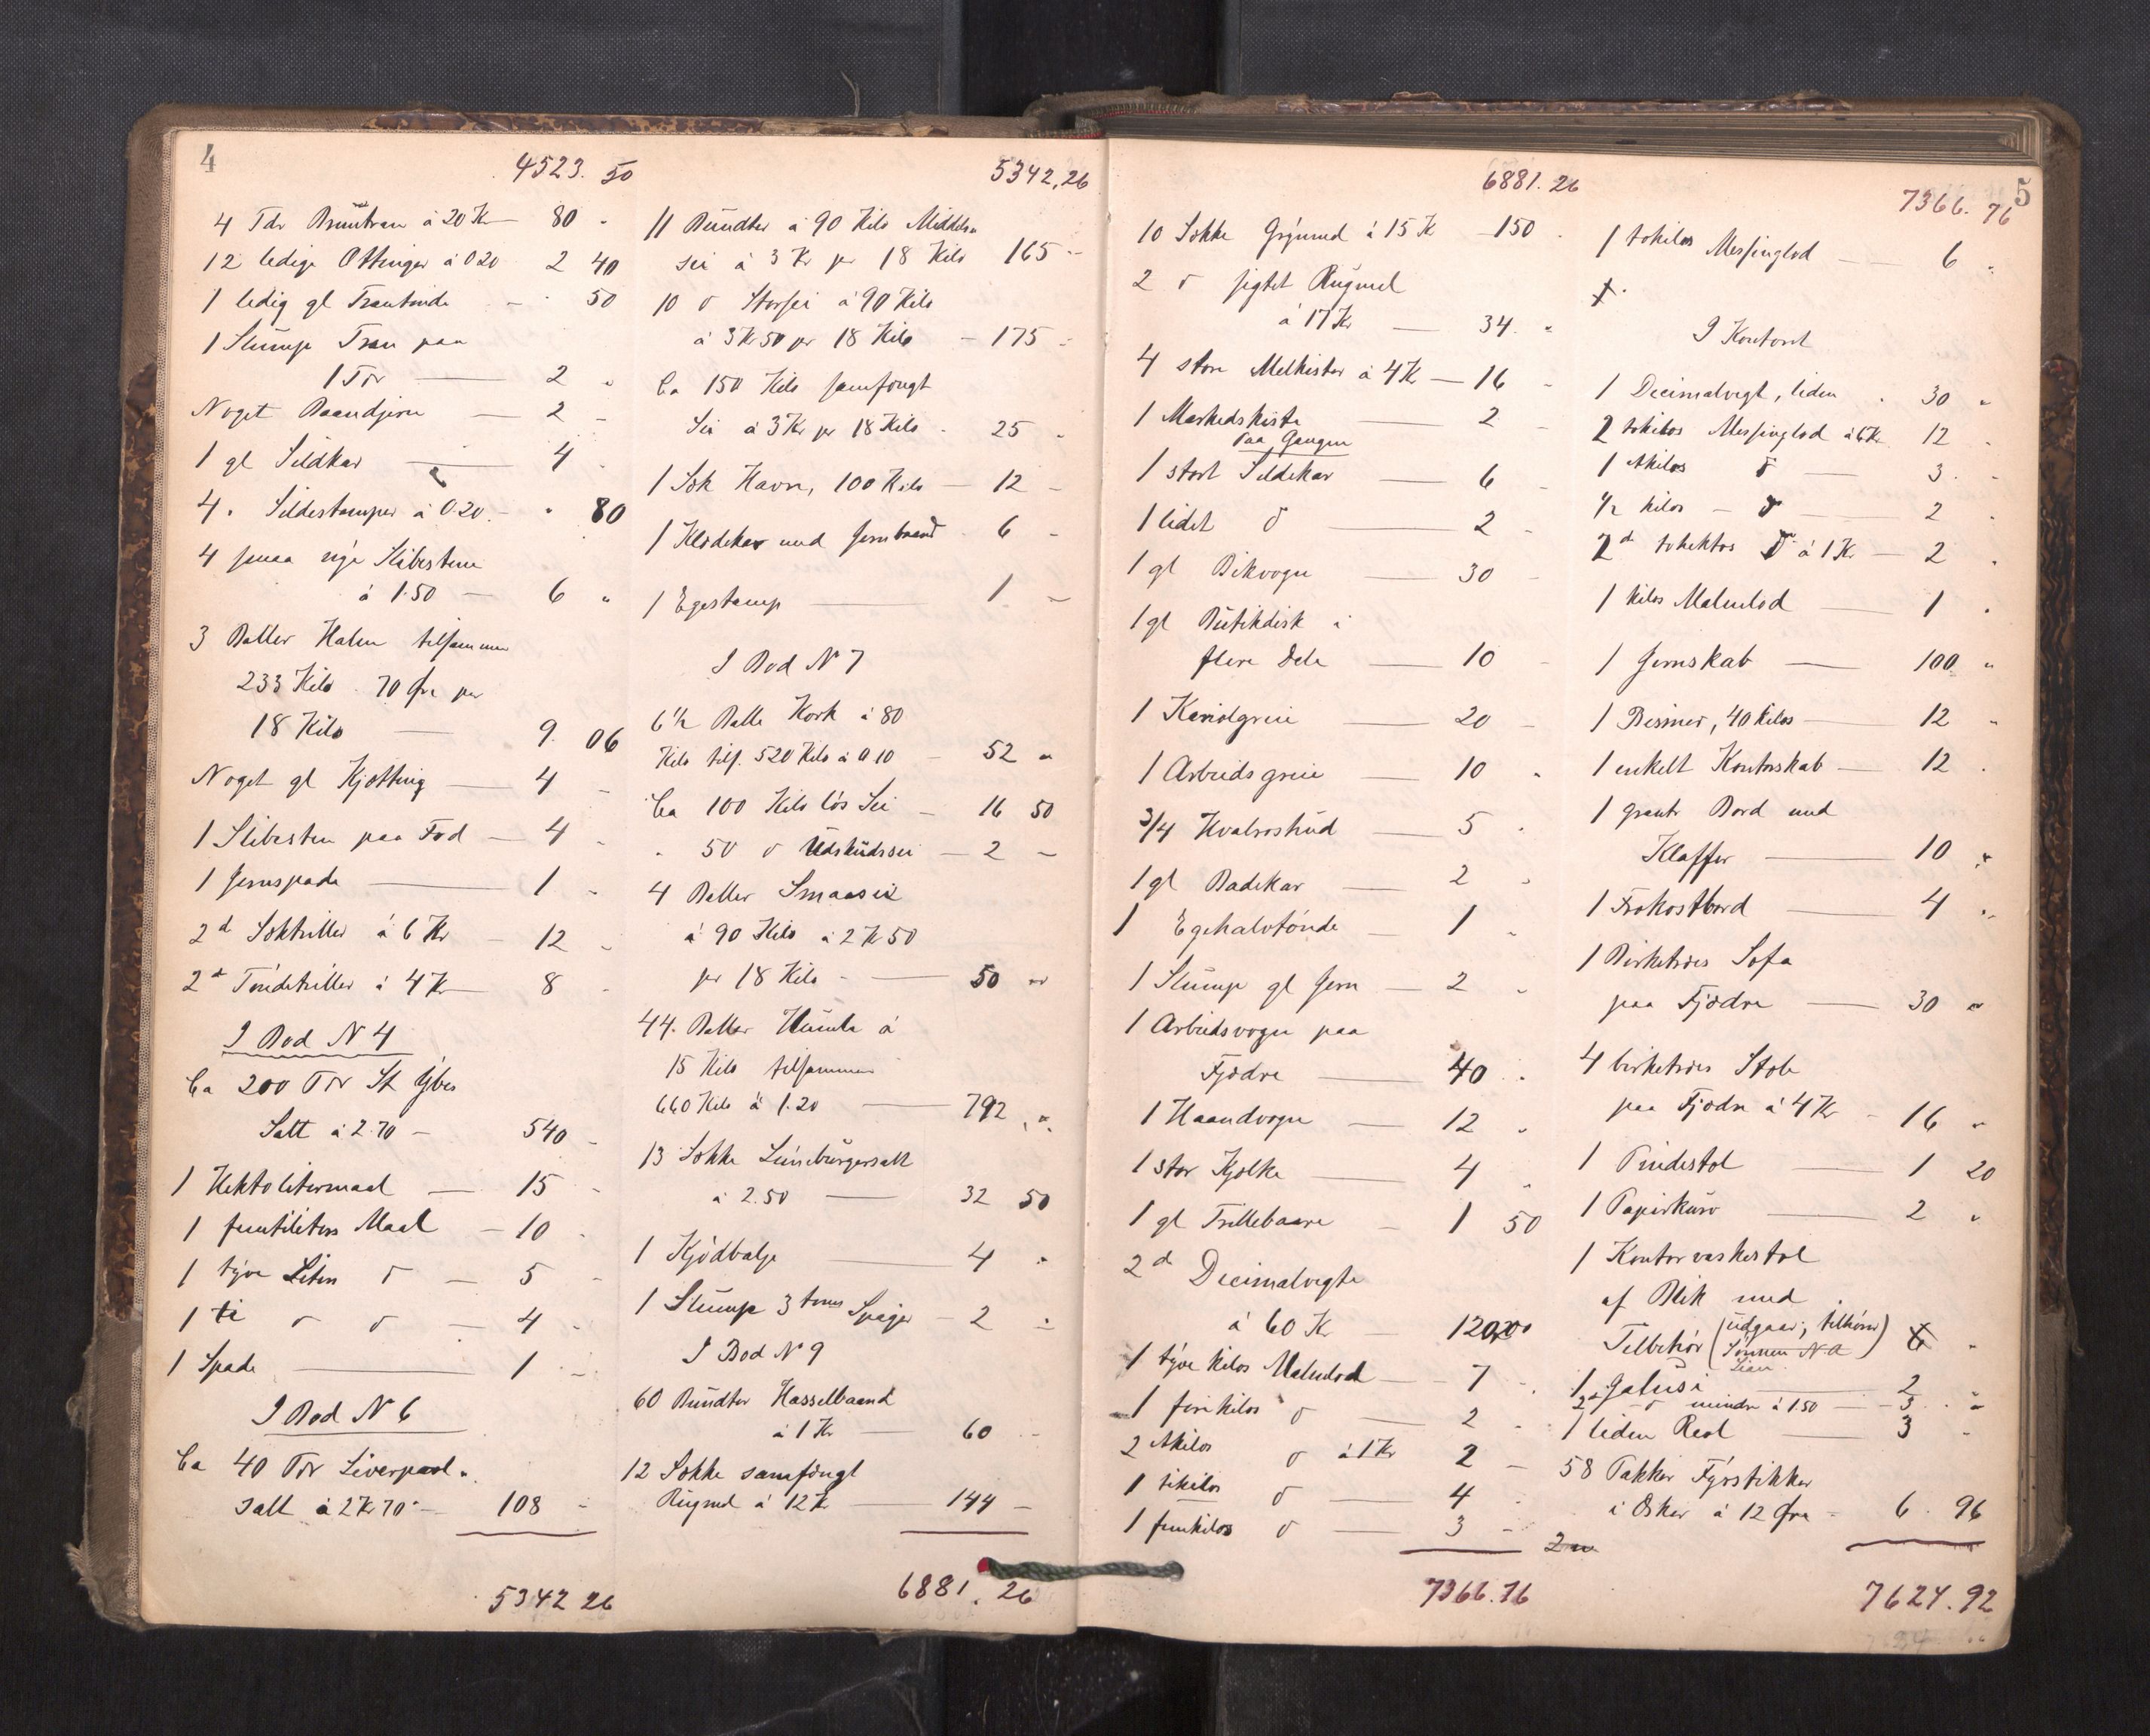 4
4523. 50
4 Tdr Bruntran à 20 Kr — 80 "
12 ledige Ottinger à 0 20 2 40
1 ledig gl Trantønde — " 50
1 Slump Tran paa
1 Tdr — 2 "
Noget Baandjern — 2 –
1 gl Sildkar — 4 "
4 " Sildestamper à 0.20 – " 80
4 smaa nye Slibestene
à 1.50 — 6 "
3 Baller Halm tilsammen
233 Kilo 70 Øre per
18 Kilo — 9. 06
Noget gl Kjøtting — 4 –
1 Slibesten paa Fod — 4 –
1 Jernspade — 1 –
2d Sæktriller à 6 Kr — 12 –
2d Tøndetriller à 4 Kr — 8 –
I Bod N 4
Ca 200 Tdr St Ybes
Salt à 2.70 – 540 –
1 Hektolitermaal — 15 –
1 femtiliters Maal — 10 –
1 tyve Liters do — 5 –
1 ti do do — 4 –
1 Spade — 1 –
I Bod N 6
Ca 40 Tdr Liverpool-
salt à 2 Kr 70 – 108 –
5342 26
5342,26
11 Bundter à 90 Kilo Middels-
sei à 3 Kr pr 18 Kilo 165 –
10 do Storsei à 90 Kilo
à 3 Kr 50 pr 18 Kilo – 175 –
Ca 150 Kilo samfængt
Sei à 3 Kr pr 18 Kilo – 25 –
1 Sæk Havre, 100 Kilo — 12 –
1 Klædekar med Jernbaand – 6 –
1 Egestamp — 1 –
I Bod N 7
6½ Balle Kork à 80
Kilo tils. 520 Kilo à 0 10 – 52 "
Ca 100 Kilo løs Sei – 16 50
" 50 do Udskudssei — 2 –
4 Baller Smaasei
à 90 Kilo à 2 Kr 50
pr 18 Kilo — 50 "
44. Baller Humle à
15 Kilo tilsammen
660 Kilo à 1.20 — 792 "
13 Sække Lüneburgersalt
à 2.50 — 32 50
1 Kjødbalje — 4 "
1 Slump 3 toms Spiger – 2 –
I Bod N 9
60 Bundter Hasselbaand
à 1 Kr — 60 –
12 Sække samfængt
Rugmel à 12 Kr — 144 –
6881. 26
6881. 26
10 Sække Grynmel à 15 Kr – 150 –
2 do sigtet Rugmel
à 17 Kr — 34. "
4 store Melkister à 4 Kr — 16 –
1 Markedskiste — 2 –
Paa Gangen
1 stort Sildekar — 6 –
1 lidet do — 2 –
1 gl Bikvogn — 30 –
1 gl Butikdisk i
flere Dele — 10 –
1 Kariolgreie — 20 –
1 Arbeidsgreie — 10 "
3/4 Hvalroshud — 5 "
1 gl Badekar — 2 "
1 Egehalvtønde — 1 "
1 Slump gl Jern — 2 "
1 Arbeidsvogn paa
Fjødre — 40 "
1 Haandvogn — 12 "
1 stor Kjælke — 4 "
1 gl Trillebaare — 1 50
2d Decimalvegte
à 60 Kr — 120
1 tyve kilos Malmlod — 7 –
1 femkilos do — 2 –
2 tokilos do à 1 Kr 2 –
1 tikilos do — 4 –
1 femkilos do — 3 –
7366.76
5
7366. 76
1 tokilos Messinglod — 6 "
I Kontoret
1 Decimalvegt, liden " 30 "
2 tokilos Messinglod à 6 Kr 12 "
1 1kilos do — 3 "
½ kilos – do — 2 "
2d tohektos do à 1 Kr — 2 "
1 kilos Malmlod — 1 "
1 Jernskab — 100 "
1 Bismer, 40 kilos — 12 "
1 enkelt Kontorskab — 12 "
1 grant Bord med
Klaffer — 10 "
1 Frokostbord — 4 "
1 Birketræs Sofa
paa Fjødre — 30 "
4 birketræs Stole
paa Fjødre à 4 Kr – 16 "
1 Pindestol — 1 20
1 Papirkurv — 2 "
1 Kontorvaskestol
af Blik med
Tilbehør (udgaar, tilhører
1 Galusi — 2
2d do mindre à 1.50 — 3 "
1 liden Reol — 3 "
58 Pakker Fyrstikker
i Æsker à 12 Øre – 6. 96
7624.92